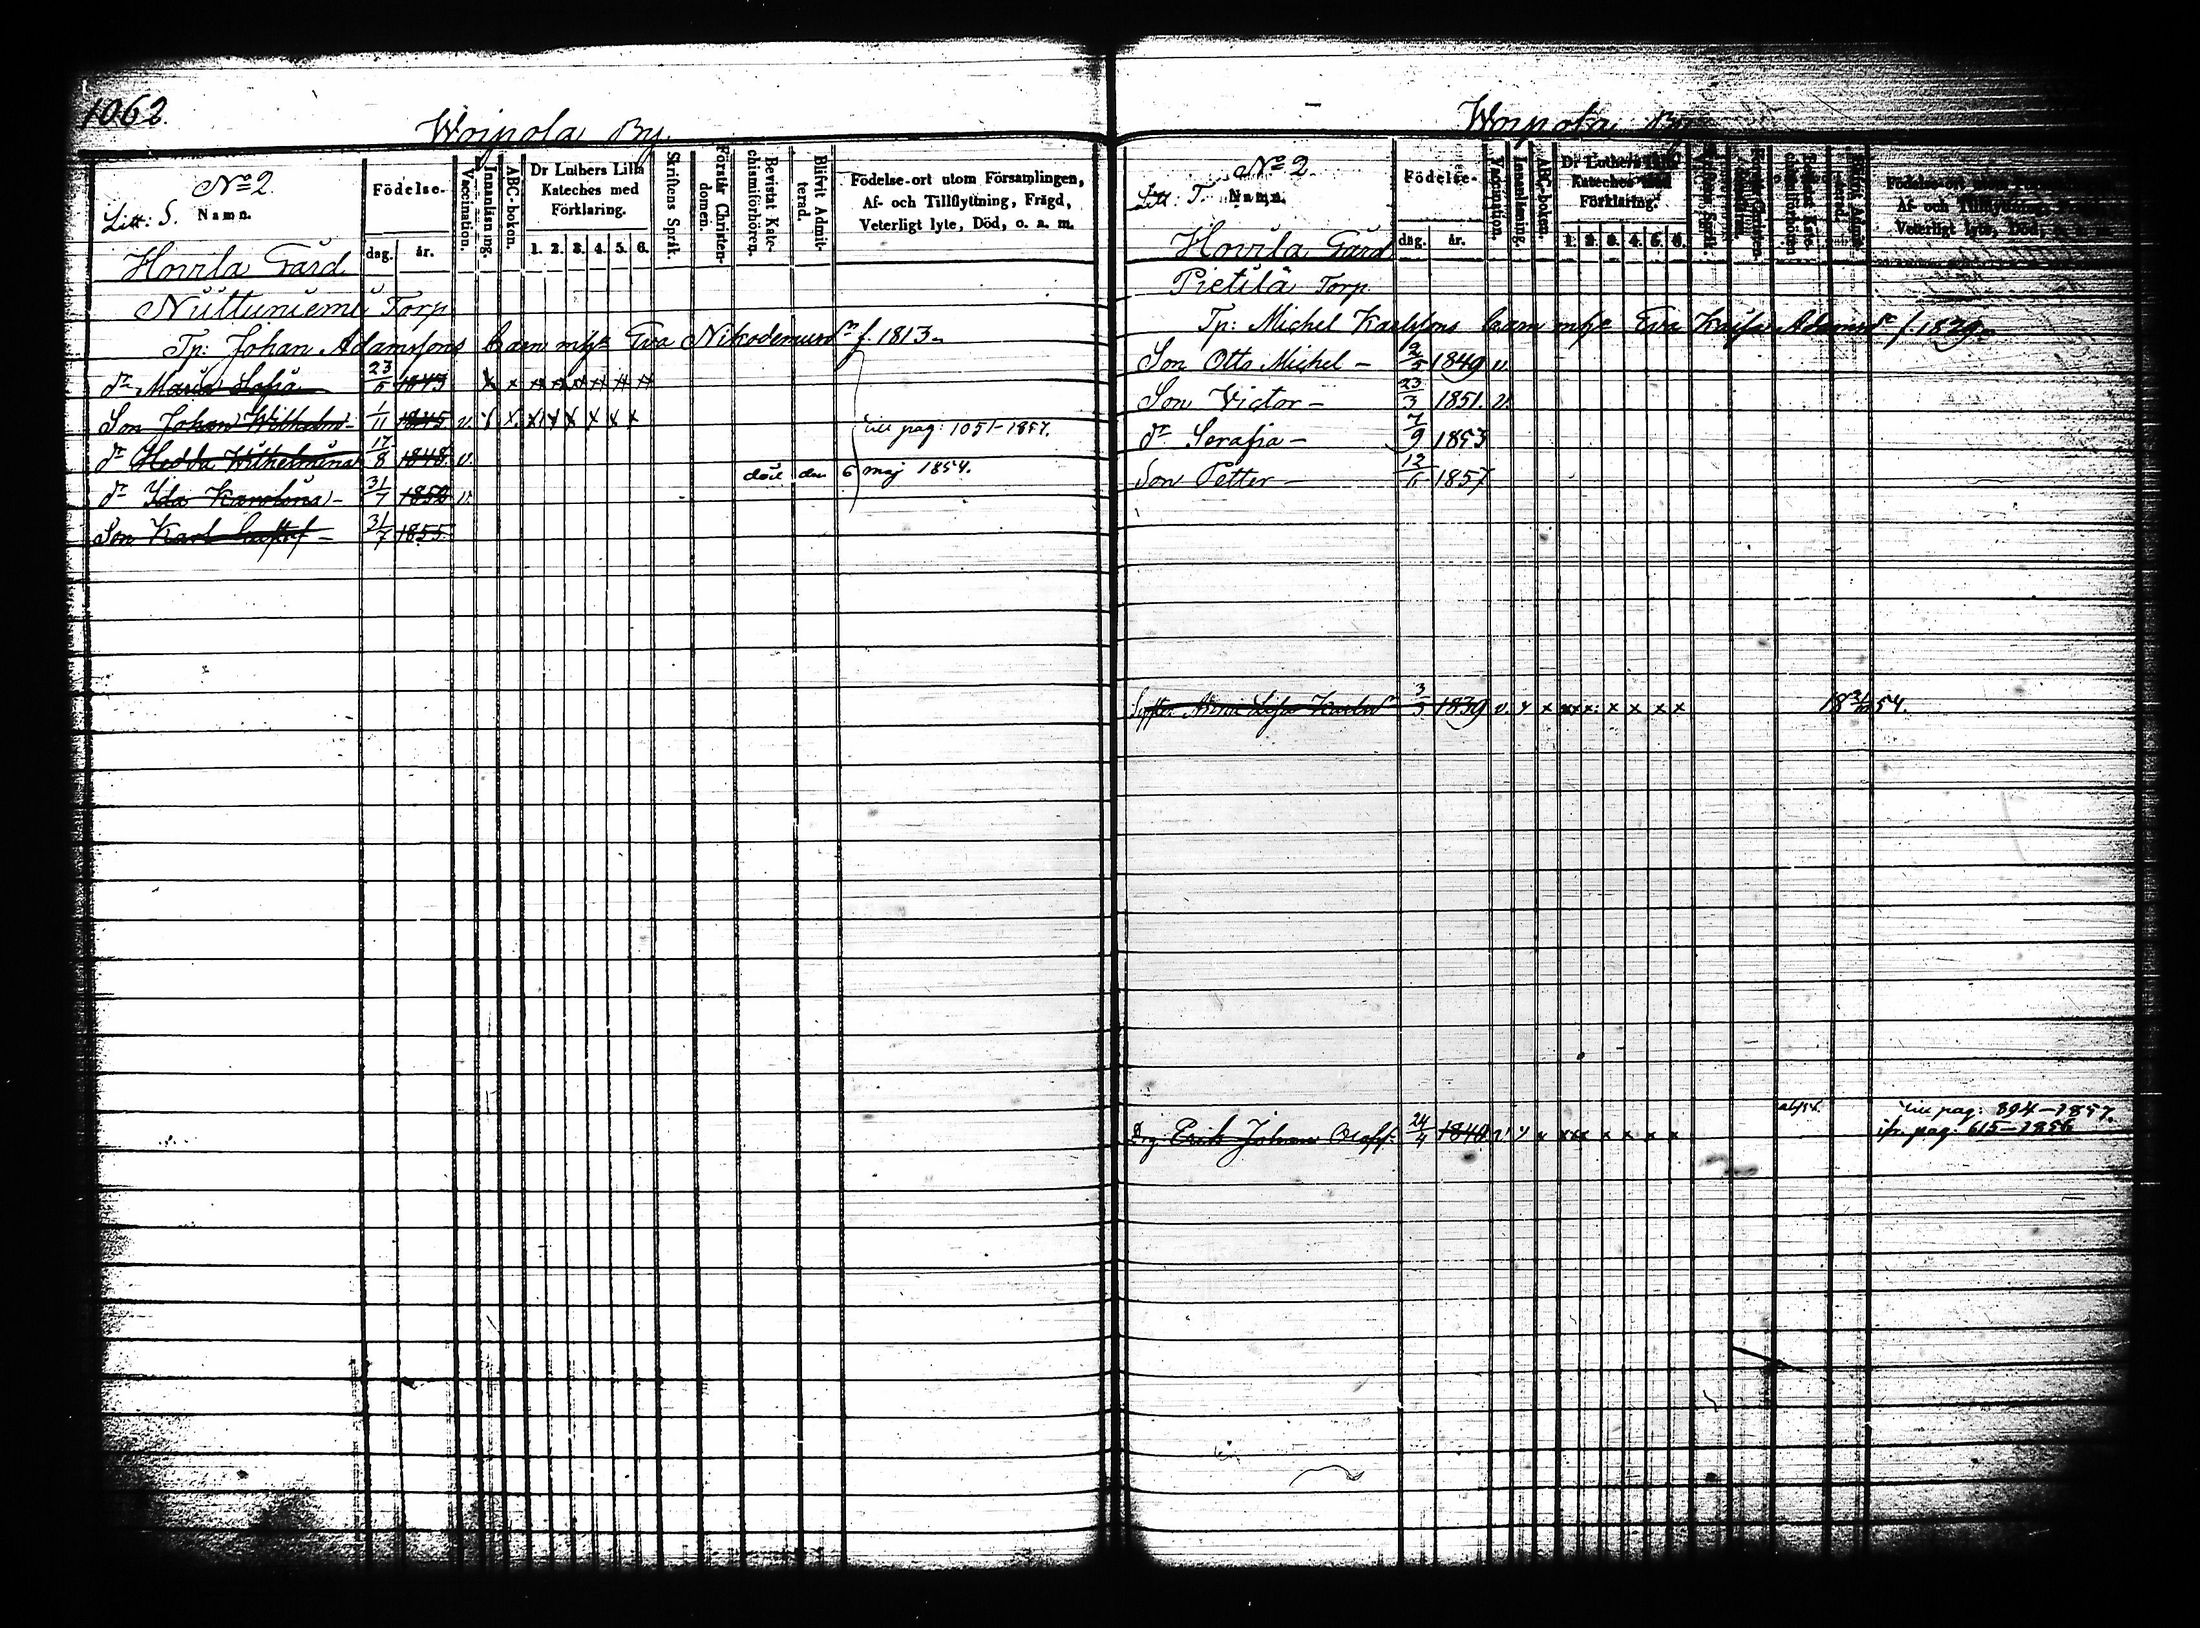 1062.
Woipola By
No 2.
Litt: S.
Namn.
Födelse-
dag. år.
Vaccination.
Innanläsning.
ABC-boken.
Dr Luthers Lilla
Kateches med
Förklaring.
1. 2. 3. 4. 5. 6.
Skriftens Språk.
Förstår Christen-
domen.
Bevistat Kate-
chismiförhören.
Blifvit Admit-
terad.
Födelse-ort utom Församlingen,
Af- och Tillflyttning, Frägd,
Veterligt lyte, Död, o. a. m.
Hovila Gård
Niittuniemi Torp
Tp: Johan Adamssons barn m/h Eva Nikodemusdr f. 1813.
dr Maria Sofia 23/5 1843 x x x x x x x x
Son Johan Wilhelm 1/11 1845 v. x x x x x x x x
till pag: 1051-1857.
dr Hedda Wilhelmina 17/8 1848 v.
död den 6 maj 1854.
dr Ida Karolina 31/7 1852 v.
Son Karl Gustaf 31/7 1855
Woipola By
No 2.
Litt. T. Namn.
Födelse-
dag. år.
Vaccination.
Innanläsning.
ABC-boken.
Dr Luthers Lilla
Kateches med
Förklaring.
1. 2. 3. 4. 5. 6.
Födelse-ort utom
Af- och Tillflyttning,
Veterligt lyte, Död,
Hovila Gård
Pietilä Torp
Tp: Michel Karlssons barn m/h Eva Kaisa Adamsdr f. 1829.
Son Otto Michel 2/5 1849 v.
Son Victor 23/3 1851. v.
dr Serafia 7/9 1853
Son Petter 12/6 1857
Lisa Karlsdr 3/5 1839 v. x x xxx x x x x 18 54.
till pag: 894-1857.
Drg Erik Johan Olofss. 24/4 1840 v x x xxx x x x x ifr. pag. 615-1856